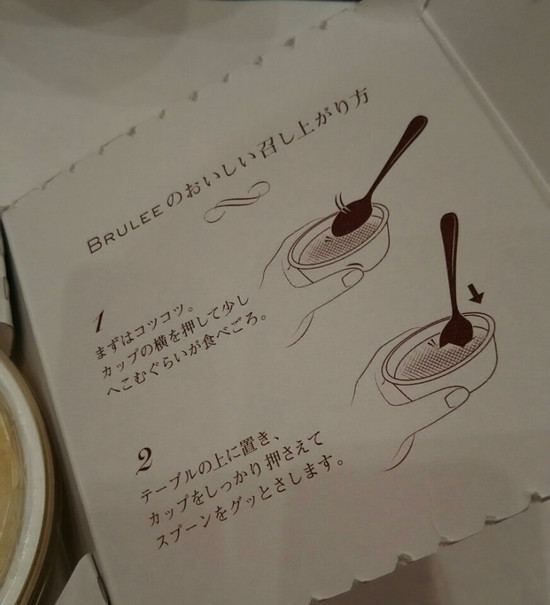 BRULEEのおいしい召し上がり方
1
まずはコツコツ。
カップの横を押して少し
へこむぐらいが食べごろ。
2
テーブルの上に置き、
カップをしっかり押さえて
スプーンをグッとさします。